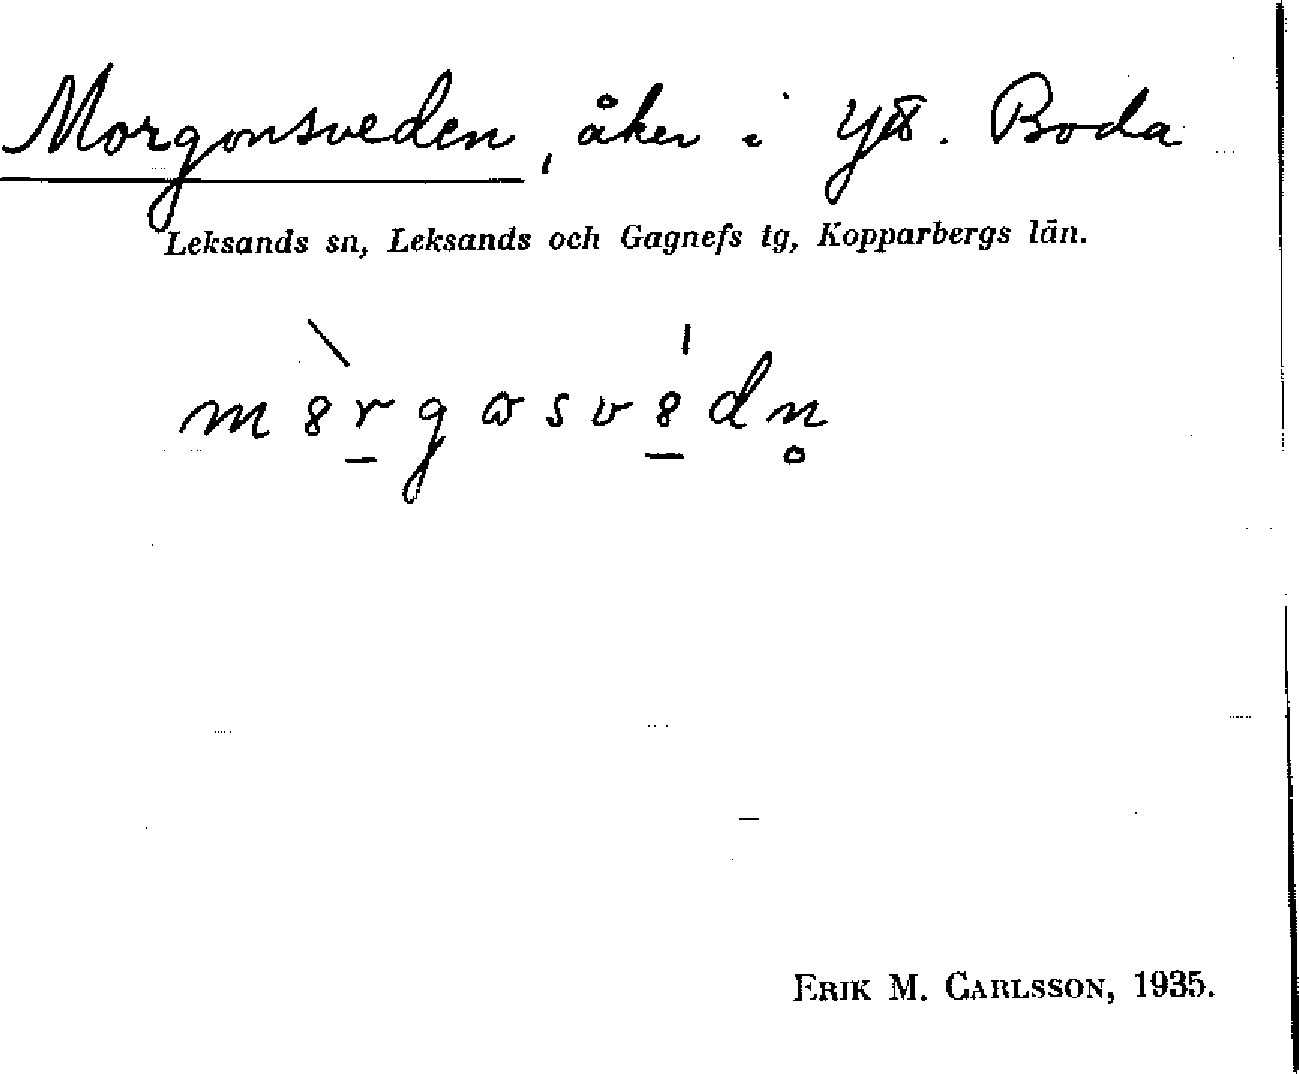 Morgonsveden, åker i Ytt. Boda
Leksands sn, Leksands och Gagnefs tg, Kopparbergs län.
ERIK M. CARLSSON, 1935.